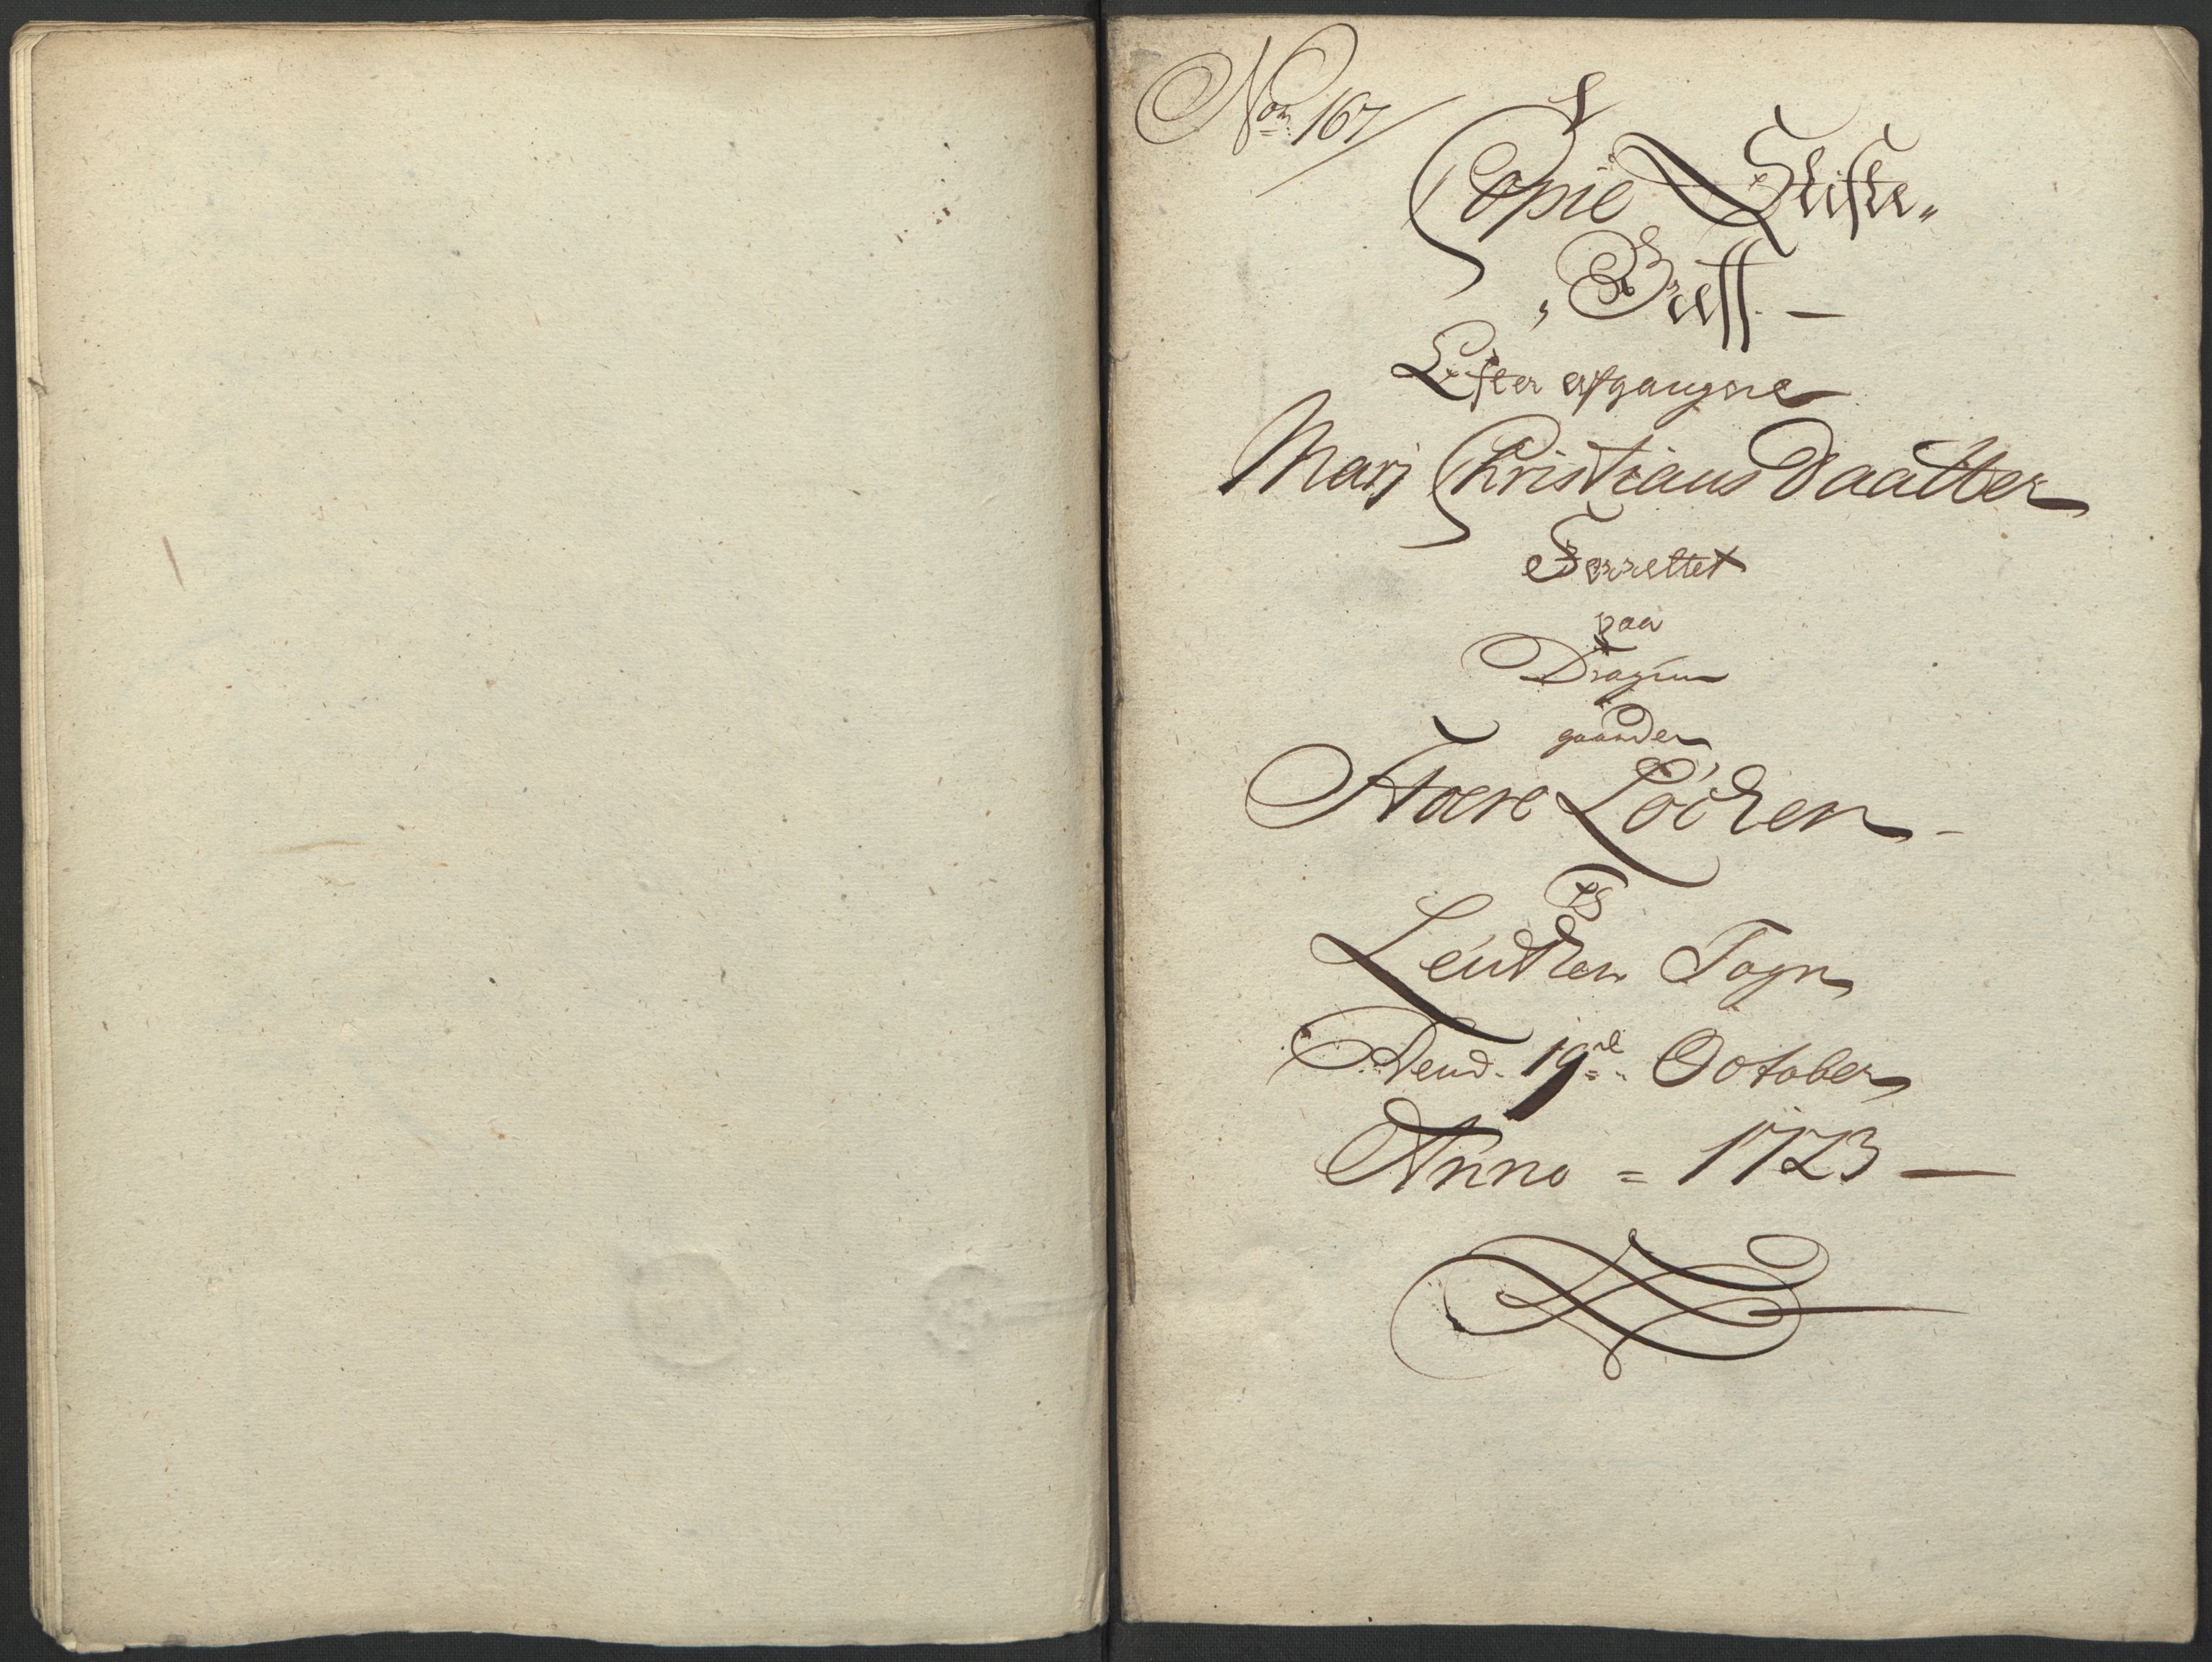 No: 167
Copie Skifte„
„Breff. —
Efter afgangne
Marj Christians Daatter
Forrettet
paa
Dragun
gaarden
Store Löchen –
I
Leuthen Sogn
Dend. 19de October
Anno = 1723 —